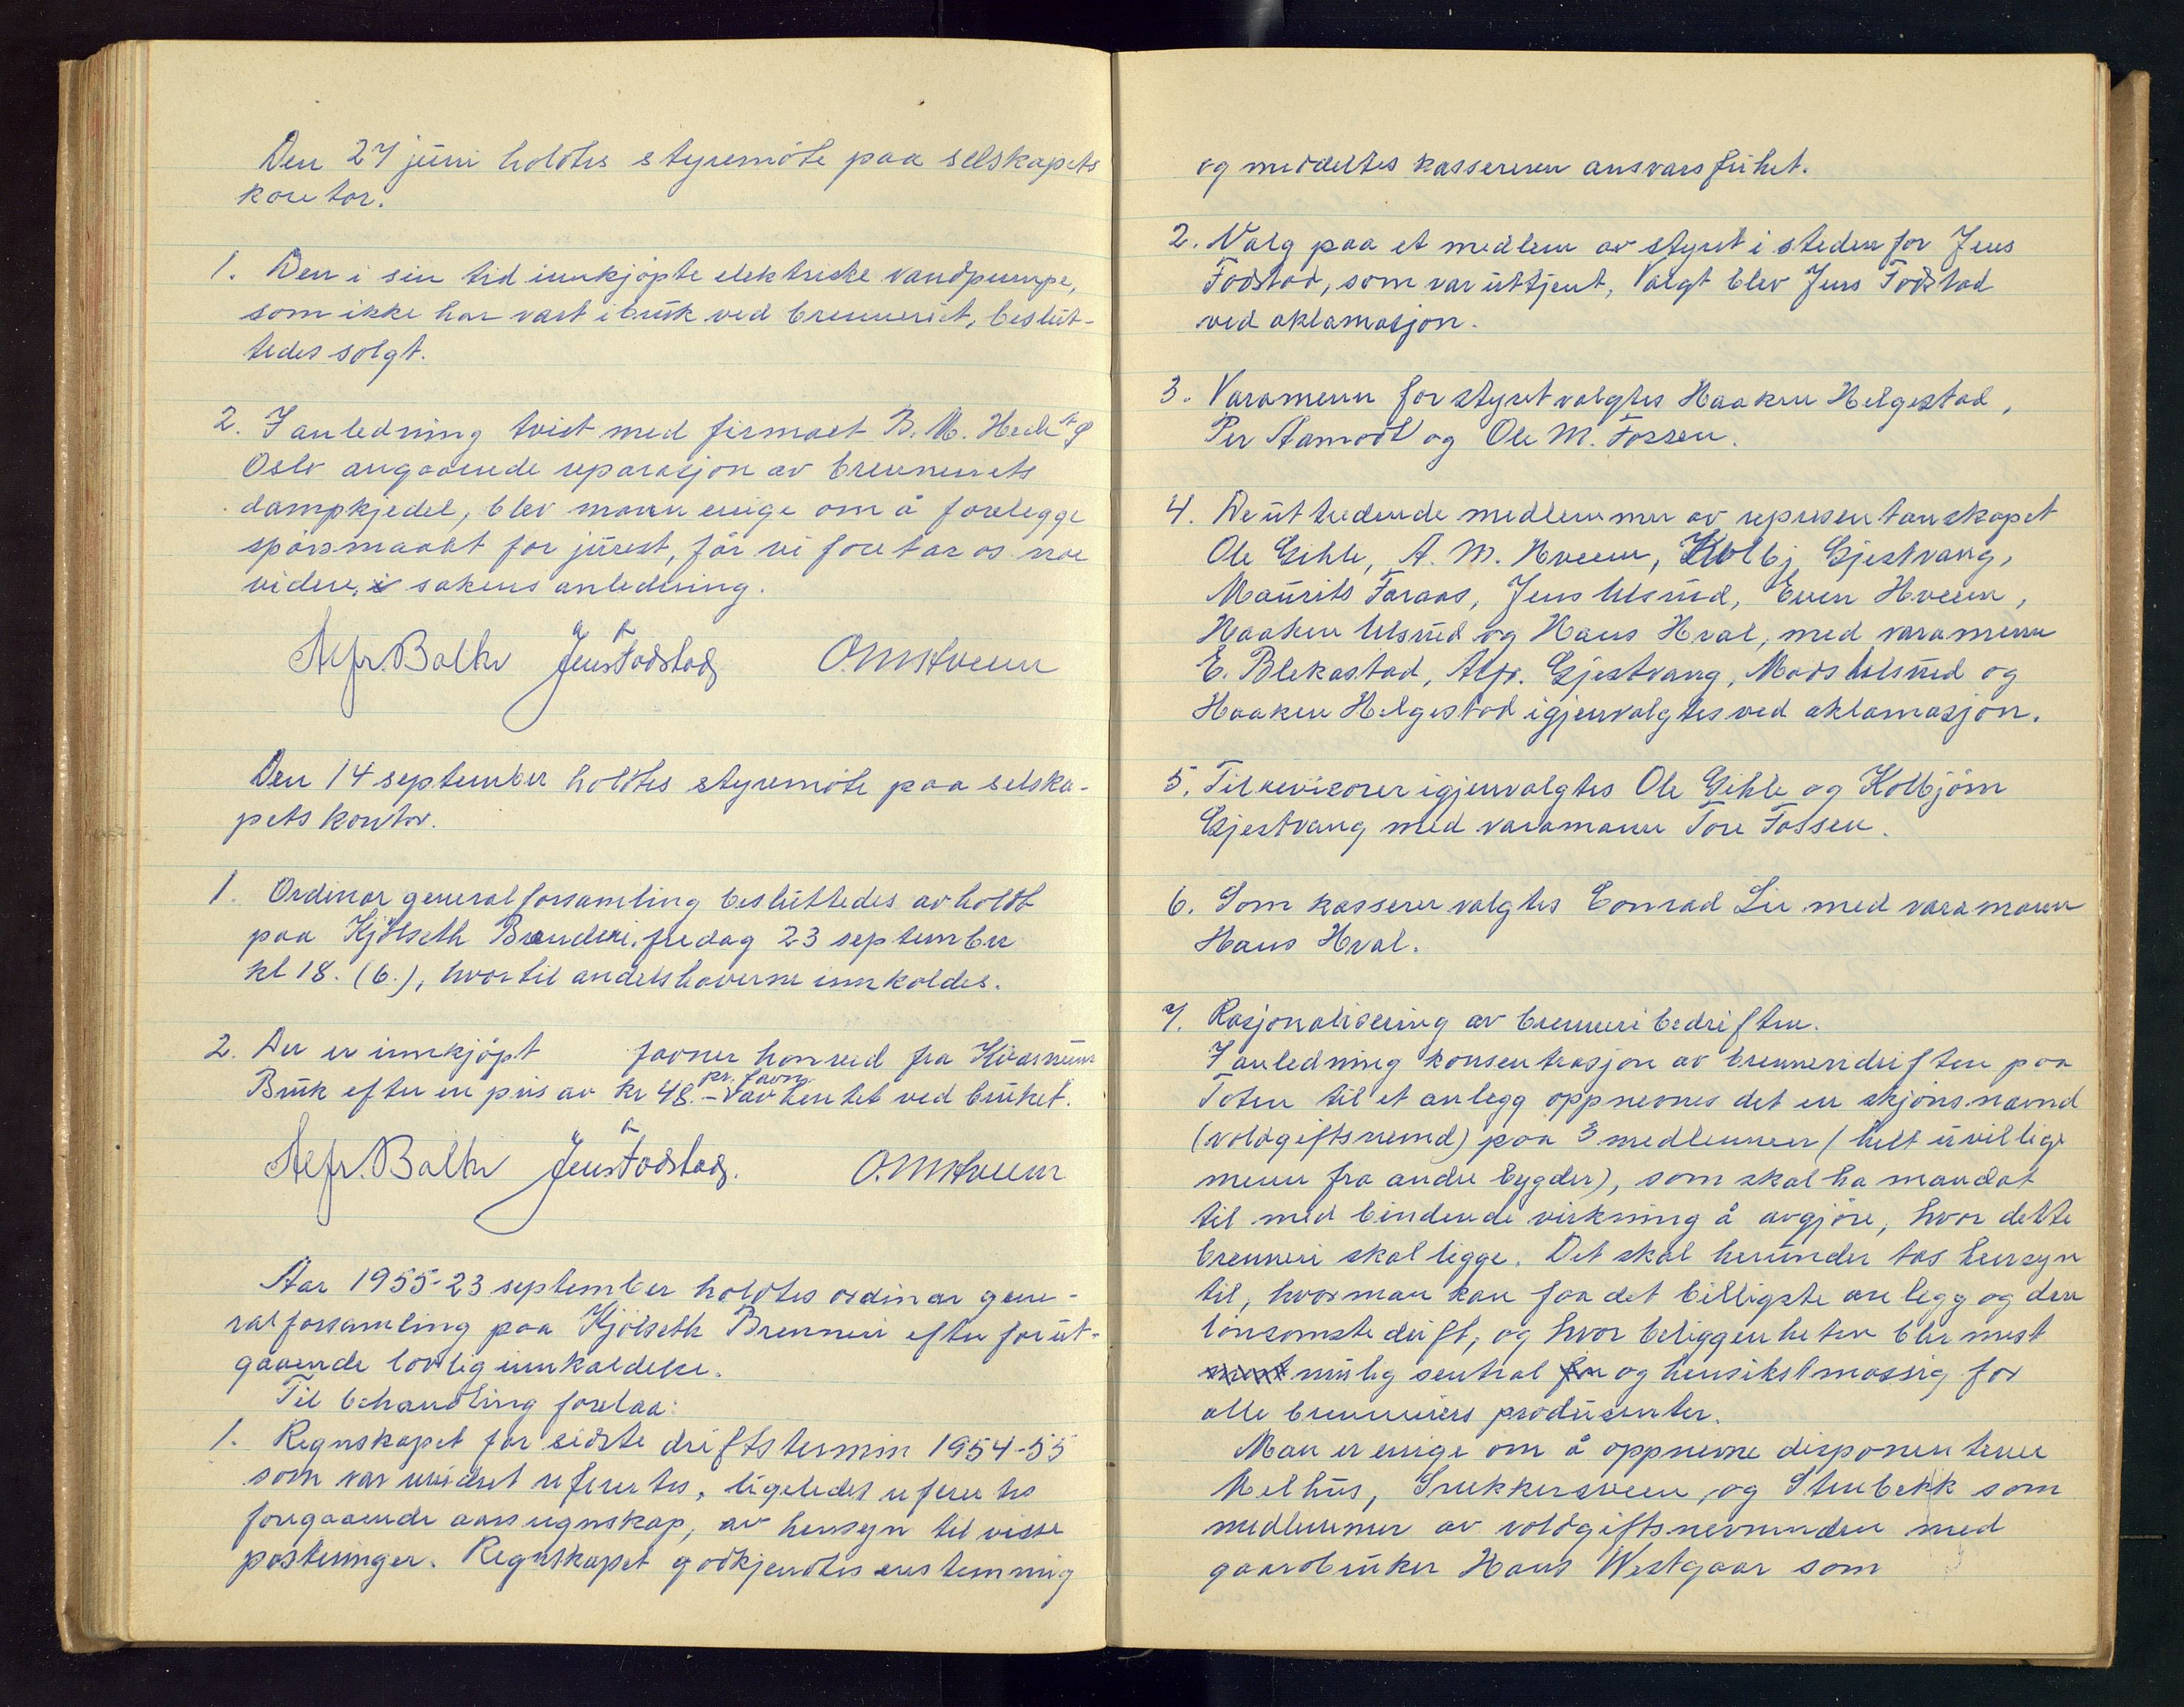 Den 27 juni holdtes styremöte paa selskapets
kontor.
1. Den i sin tid innkjöpte elektriske vandpumpe,
som ikke har vært i bruk ved brenneriet, beslut-
tedes solgt.
2. I anledning tvist med firmaet B. M.
Oslo angaaende reparasjon av brenneriets
dampkjedel, blev mann enige om å forelegge
spörsmaalet for jurist, för vi foretar os noe
videre, i sakens anledning.
Alfr. Balke Jens Fodstad O. M. Hveem
Den 14 september holdtes styremöte paa selska-
pets kontor.
1. Ordinær generalforsamling besluttedes avholdt
paa Kjölseth Brænderi, fredag 23 september
kl 18. (6.), hvortil andelshaverne innkaldes.
2. Der er innkjöpt favner honved fra Kværnum
Bruk efter en pris av kr 48.- pr. favn hentet ved bruket.
Alfr. Balke Jens Fodstad. O. M. Hveem
Aar 1955-23 september holdtes ordinær gene-
ralforsamling paa Kjölseth Brenneri efter forut-
gaaende lovlig innkaldelse.
Til behandling forelaa:
1. Regnskapet for sidste driftstermin 1954-55
som var revideret referertes, ligeledes referertes
foregaaende aars regnskap, av hensyn til visse
posteringer. Regnskapet godkjendtes enstemmig
og meddeltes kassereren ansvarsfrihet.
2. Valg paa et medlem av styret i steden for Jens
Fodstad, som var uttjent, Valgt blev Jens Fodstad
ved aklamasjon.
3. Varamenn for styret valgtes Haaken Helgestad,
Per Aamodt og Ole M. Fossen.
4. De uttredende medlemmer av representanskapet
Ole Gihle, A. M. Hveem, Kolbj Gjestvang,
Maurits Faraas, Jens Ulsrud, Even Hveem,
Haaken Ulsrud og Hans Hval, med varamenn
E. Blekastad, Alfr. Gjestvang, Mads Ulsrud og
Haaken Helgestad igjenvalgtes ved aklamasjon.
5. Til revisorer igjenvalgtes Ole Gihle og Kolbjörn
Gjestvang med varamann Tore Fossen.
6. Som kasserer valgtes Conrad Lie med varamann
Hans Hval.
7. Rasjonalisering av brenneribedriften.
I anledning konsentrasjon av brenneridriften paa
Toten til et anlegg oppnevnes det en skjönsnævnd
(voldgiftsnemd) paa 3 medlemmer (helt uvillige
menn fra andre bygder), som skal ha mandat
til med bindende virkning å avgjöre, hvor dette
brenneri skal ligge. Det skal herunder tas hensyn
til, hvor man kan faa det billigste anlegg og den
lönsomste drift, og hvor beliggenheten blir mest
mulig sentral og hensiktsmæssig for
alle brenneriers produsenter.
Man er enige om å oppnevne disponentene
Melhus, Snekkersveen, og Stenbekk som
medlemmer av voldgiftsnevnnden med
gaardbruker Hans Westgaar som